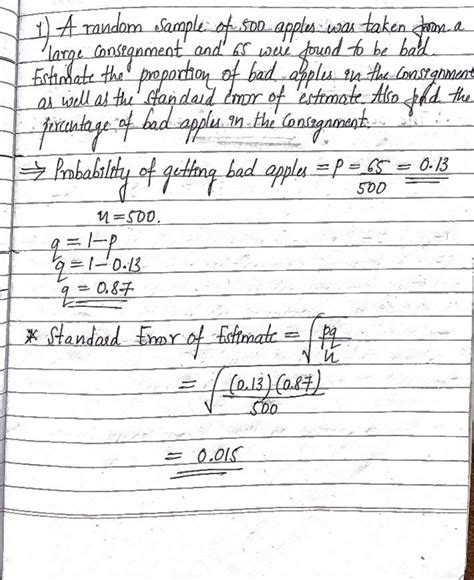 1) A random sample of 500 apples was taken from a
large consignment and 65 were found to be bad.
Estimate the proportion of bad apples in the consignment
as well as the standard error of estimate. Also find the
percentage of bad apples in the consignment.
⇒ Probability of getting bad apples = P = 65/500 = 0.13
n = 500.
q = 1-p
q = 1-0.13
q = 0.87
* Standard Error of Estimate = √(pq/n)
= √((0.13)(0.87)/500)
= 0.015